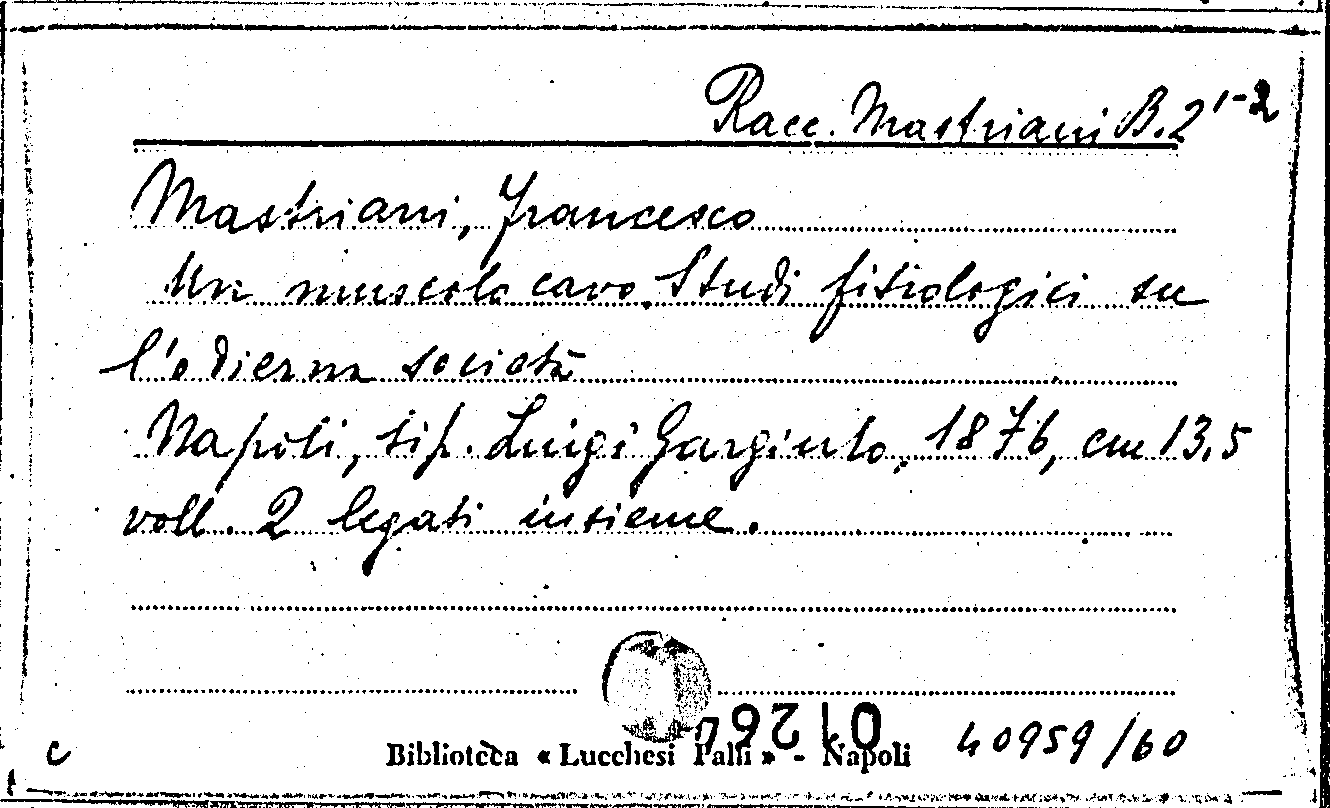 Racc. Mastriani B. 2 1-2
Mastriani, Francesco
Un muscolo cavo. Studi fisiologici su
l'odierna società
Napoli, tip. Luigi Gargiulo, 1876, cm 13,5
voll. 2 legati insieme.
c
Biblioteca « Lucchesi Palli » - Napoli
40959/60